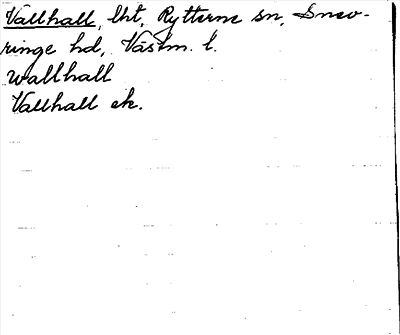 Vallhall, lht, Rytterne sn, Snev-
ringe hd, Västm. l.
Wallhall
Vallhall ek.